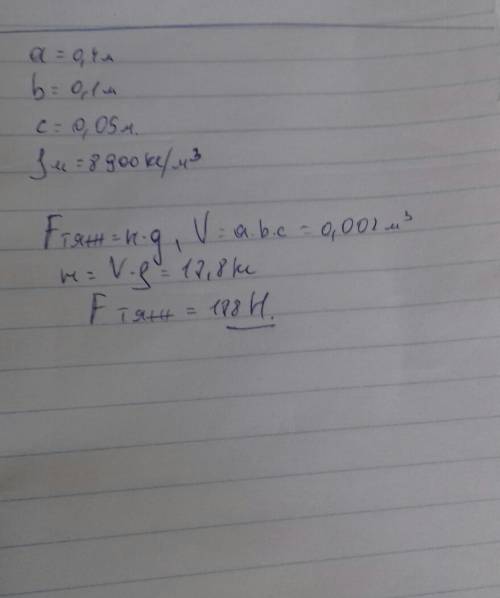 a = 0,4м
b = 0,1м
c = 0,05м.
ρм = 8900кг/м³
Fтяж = m·g, V = a.b.c = 0,002 м³
m = V·ρ = 17,8кг
Fтяж = 178Н.